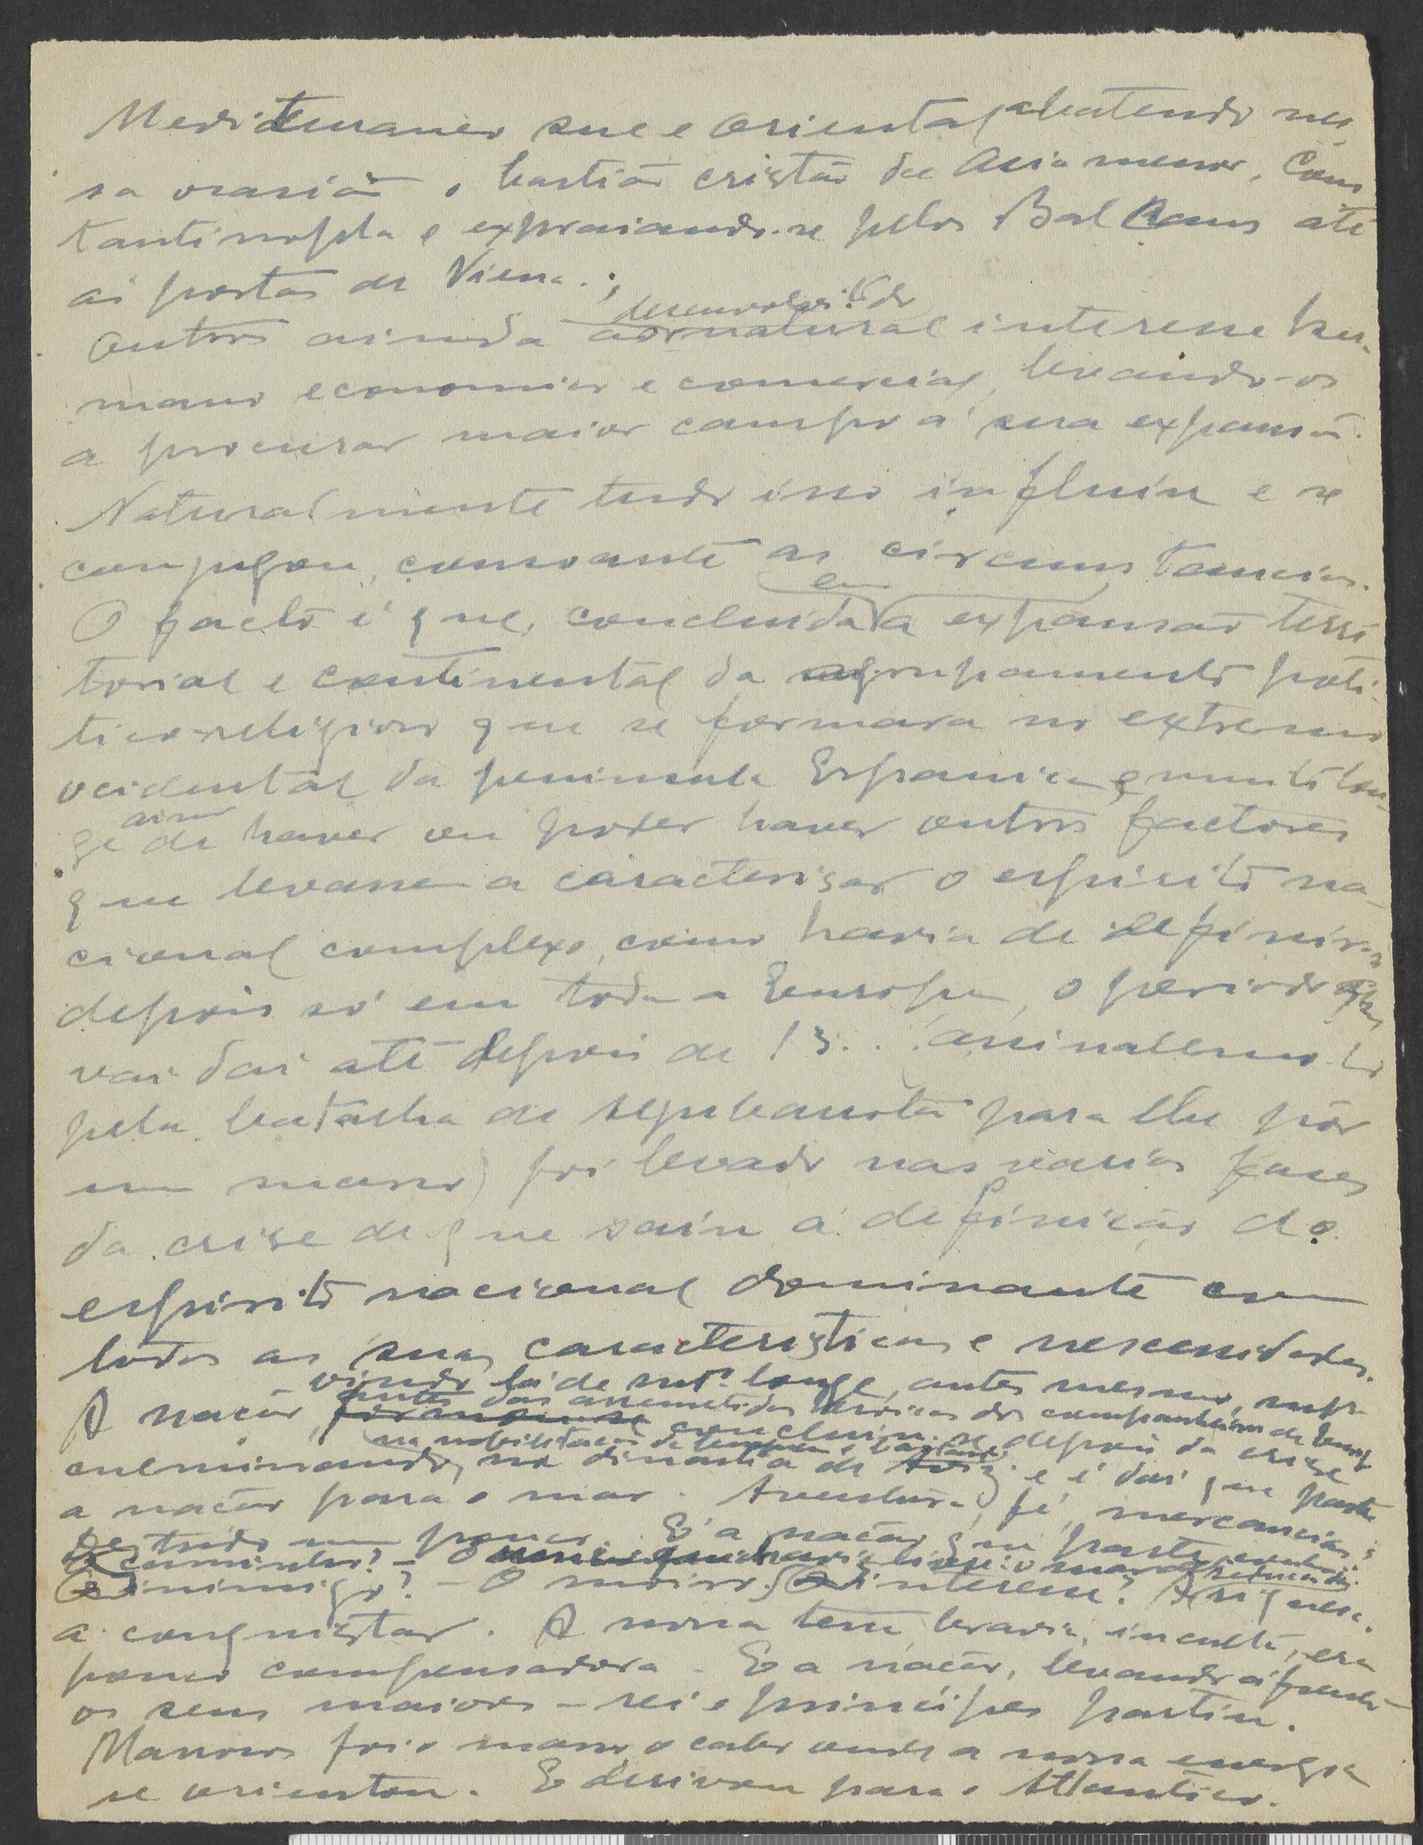 Mediterraneo sul e oriental, abatendo nes
sa ocasião o bastião cristão da Asia menor, Cons
tantinopla e expraiando-se pelos Balkans até
ás portas de Viena.;
desenvolvido
Outros ainda ao natural interesse hu-
mano economico e comercial, levando-os
a procurar maior campo á sua expansão.
Naturalmente tudo isso influiu e se
conjugou, consoante as circunstancias.
em
O facto é que, concluida a expansão terri
torial e continental do agrupamento poli-
tico-religioso que se formara no extremo
ocidental da peninsula Espanica e muito lon-
ainda
ge de haver ou poder haver outros factores
que levassem a caracterisar o espirito na-
cional complexo, como havia de definir-se
depois só em toda a Europa, o periodo que
vai dai até depois de 13.. (assinalemo-lo
pela batalha de Aljubarrota para lhe pôr
um marco) foi levado nas varias fases
da crise de que saiu a definição do
espirito nacional dominante com
todas as suas caracteristicas e necessidades.
vindo lá de mto longe, antes mesmo,
antes das arremetidas heroicas dos companheiros de
A nação, formou-se concluiu-se depois da crise
na nobilitação de
culminando, na dinastia de Aviz; e é daí que parte
a nação para o mar. Aventura, fé, mercancia;
De tudo um pouco. E' a nação que parte
O caminho? - O unico que havia livre: o mar
O inimigo? - O moiro. O interesse? A riqueza
a conquistar. A nossa terra bravia, inculta, era
pouco compensadora. E a nação, levando á frente
os seus maiores - rei e principes partiu.
Marrocos foi o marco, o cabo onde a nossa energia
se orientou. E derivou para o Atlantico.